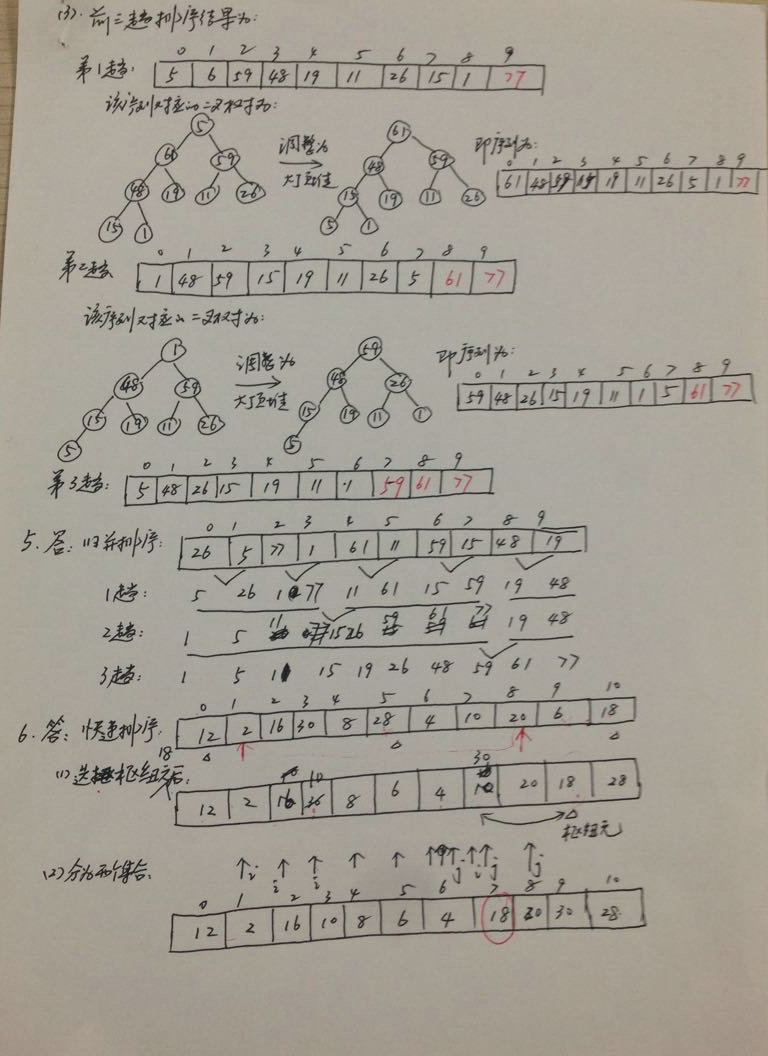 (3). 前三趟排序结果为:
0 1 2 3 4 5 6 7 8 9
第1趟: 5 6 59 48 19 11 26 15 1 77
该序列对应的二叉树为:
5 61 59 48 19 11 26 15 1
调整为
大顶堆
61 48 59 15 19 11 26 5 1
即序列为:
0 1 2 3 4 5 6 7 8 9
61 48 59 15 19 11 26 5 1 77
0 1 2 3 4 5 6 7 8 9
第2趟 1 48 59 15 19 11 26 5 61 77
该序列对应的二叉树为:
1 48 59 15 19 11 26 5
调整为
大顶堆
59 48 26 15 19 11 1 5
即序列为:
0 1 2 3 4 5 6 7 8 9
59 48 26 15 19 11 1 5 61 77
0 1 2 3 4 5 6 7 8 9
第3趟: 5 48 26 15 19 11 1 59 61 77
0 1 2 3 4 5 6 7 8 9
5. 答: 归并排序: 26 5 77 1 61 11 59 15 48 19
1趟: 5 26 1 77 11 61 15 59 19 48
2趟: 1 5 11 15 26 59 61 77 19 48
3趟: 1 5 11 15 19 26 48 59 61 77
0 1 2 3 4 5 6 7 8 9 10
6. 答: 快速排序: 12 2 16 30 8 28 4 10 20 6 18
18
(1) 选择枢纽元后:
10 30
12 2 16 8 6 4 20 18 28
枢纽元
(2) 分为两个集合:
i i i j i j j
0 1 2 3 4 5 6 7 8 9 10
12 2 16 10 8 6 4 18 20 30 28